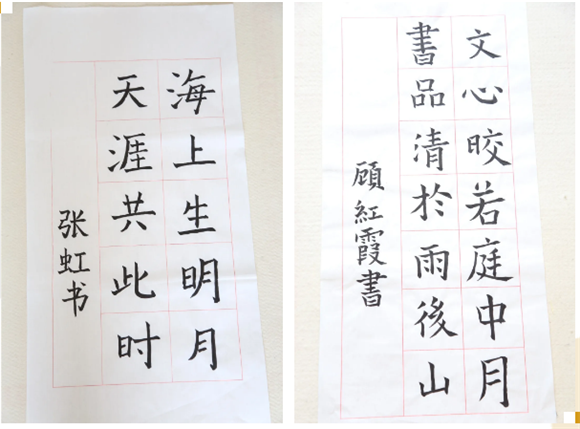 海上生明月
天涯共此时
张虹书
文心晈若庭中月
書品清於雨後山
顾紅霞書